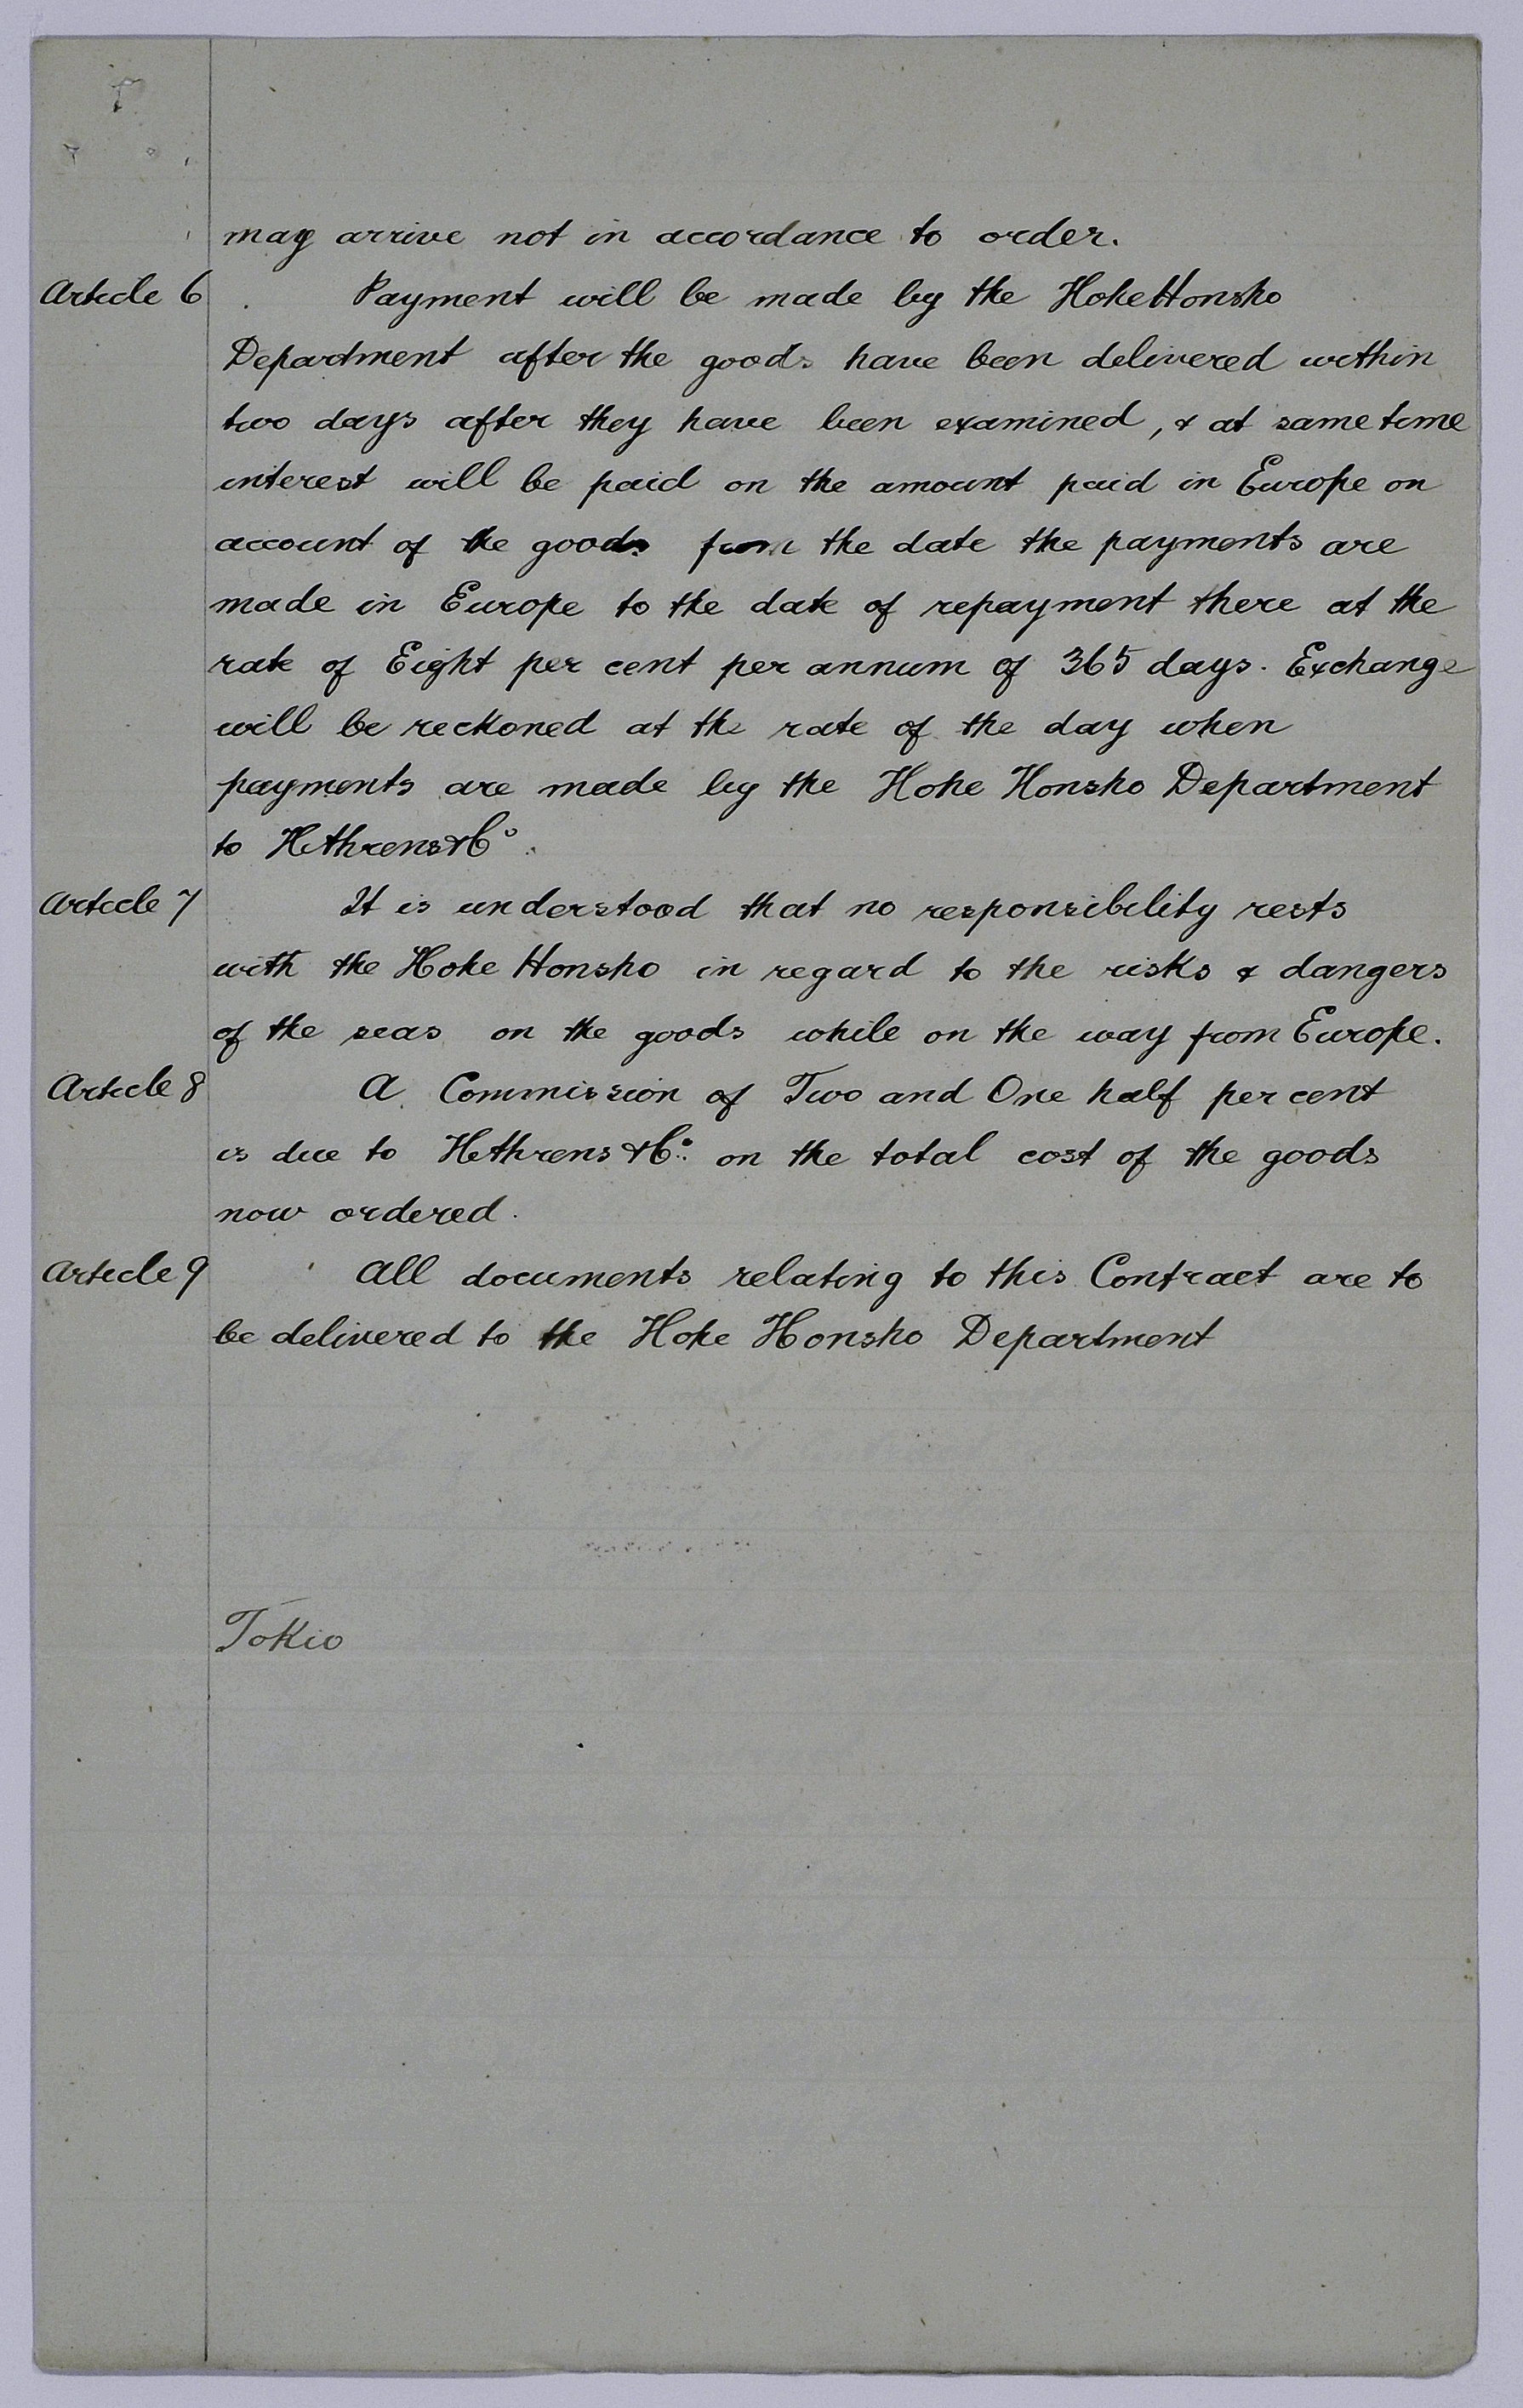 may arrive not in accordance to order.
Article 6 Payment will be made by the Hohe Honsho
Department after the goods have been delivered within
two days after they have been examined, & at same time
interest will be paid on the amount paid in Europe on
account of the goods from the date the payments are
made in Europe to the date of repayment there at the
rate of Eight per cent per annum of 365 days. Exchange
will be reckoned at the rate of the day when
payments are made by the Hohe Honsho Department
to H Ahrens & Co.
Article 7 It is understood that no responsibility rests
with the Hohe Honsho in regard to the risks & dangers
of the seas on the goods while on the way from Europe.
Article 8 A Commission of Two and One half per cent
is due to H Ahrens & Co. on the total cost of the goods
now ordered.
Article 9 All documents relating to this Contract are to
be delivered to the Hohe Honsho Department
Tokio